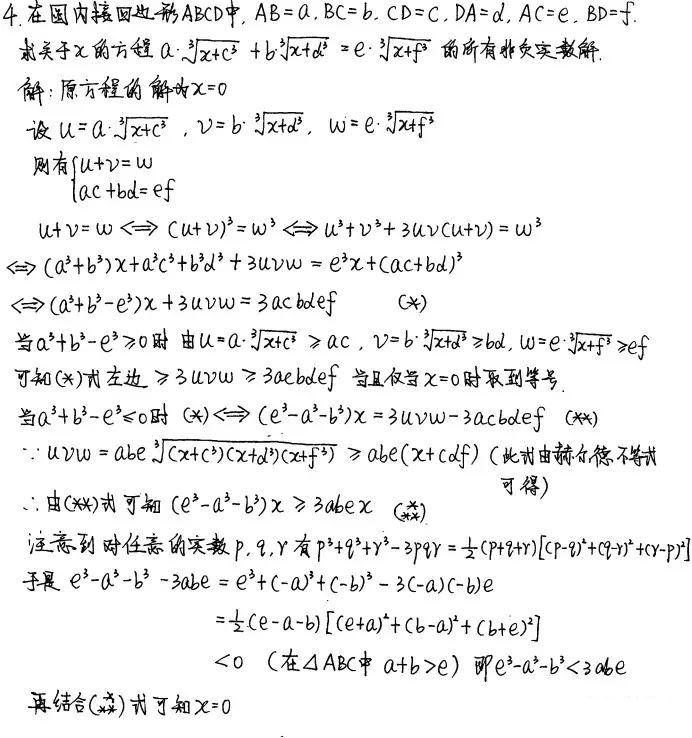 4. 在圆内接四边形ABCD中, AB=a, BC=b, CD=c, DA=d, AC=e, BD=f.
求关于x的方程 a·∛(x+c³) + b·∛(x+d³) = e·∛(x+f³) 的所有非负实数解.
解: 原方程的解为x=0
设 u=a·∛(x+c³) , v=b·∛(x+d³), w=e·∛(x+f³)
则有{u+v=w
ac+bd=ef
u+v=w <=> (u+v)³=w³ <=> u³+v³+3uv(u+v)=w³
<=> (a³+b³)x+a³c³+b³d³+3uvw = e³x+(ac+bd)³
<=> (a³+b³-e³)x+3uvw=3acbdef (*)
当a³+b³-e³≥0时 由u=a·∛(x+c³) ≥ac, v=b·∛(x+d³) ≥bd, w=e·∛(x+f³) ≥ef
可知(*)式左边 ≥3uvw ≥3acbdef 当且仅当x=0时取到等号.
当a³+b³-e³≤0时 (*) <=> (e³-a³-b³)x=3uvw-3acbdef (**)
∵ uvw=abe∛((x+c³)(x+d³)(x+f³)) ≥abe(x+cdf) (此式由赫尔德不等式
可得)
∴由(**)式可知 (e³-a³-b³)x ≥3abex (***)
注意到对任意的实数p,q,r 有p³+q³+r³-3pqr=½(p+q+r)[(p-q)²+(q-r)²+(r-p)²]
于是 e³-a³-b³-3abe = e³+(-a)³+(-b)³-3(-a)(-b)e
=½(e-a-b)[(e+a)²+(b-a)²+(b+e)²]
<0 (在△ABC中 a+b>e) 即e³-a³-b³<3abe
再结合(***)式可知x=0